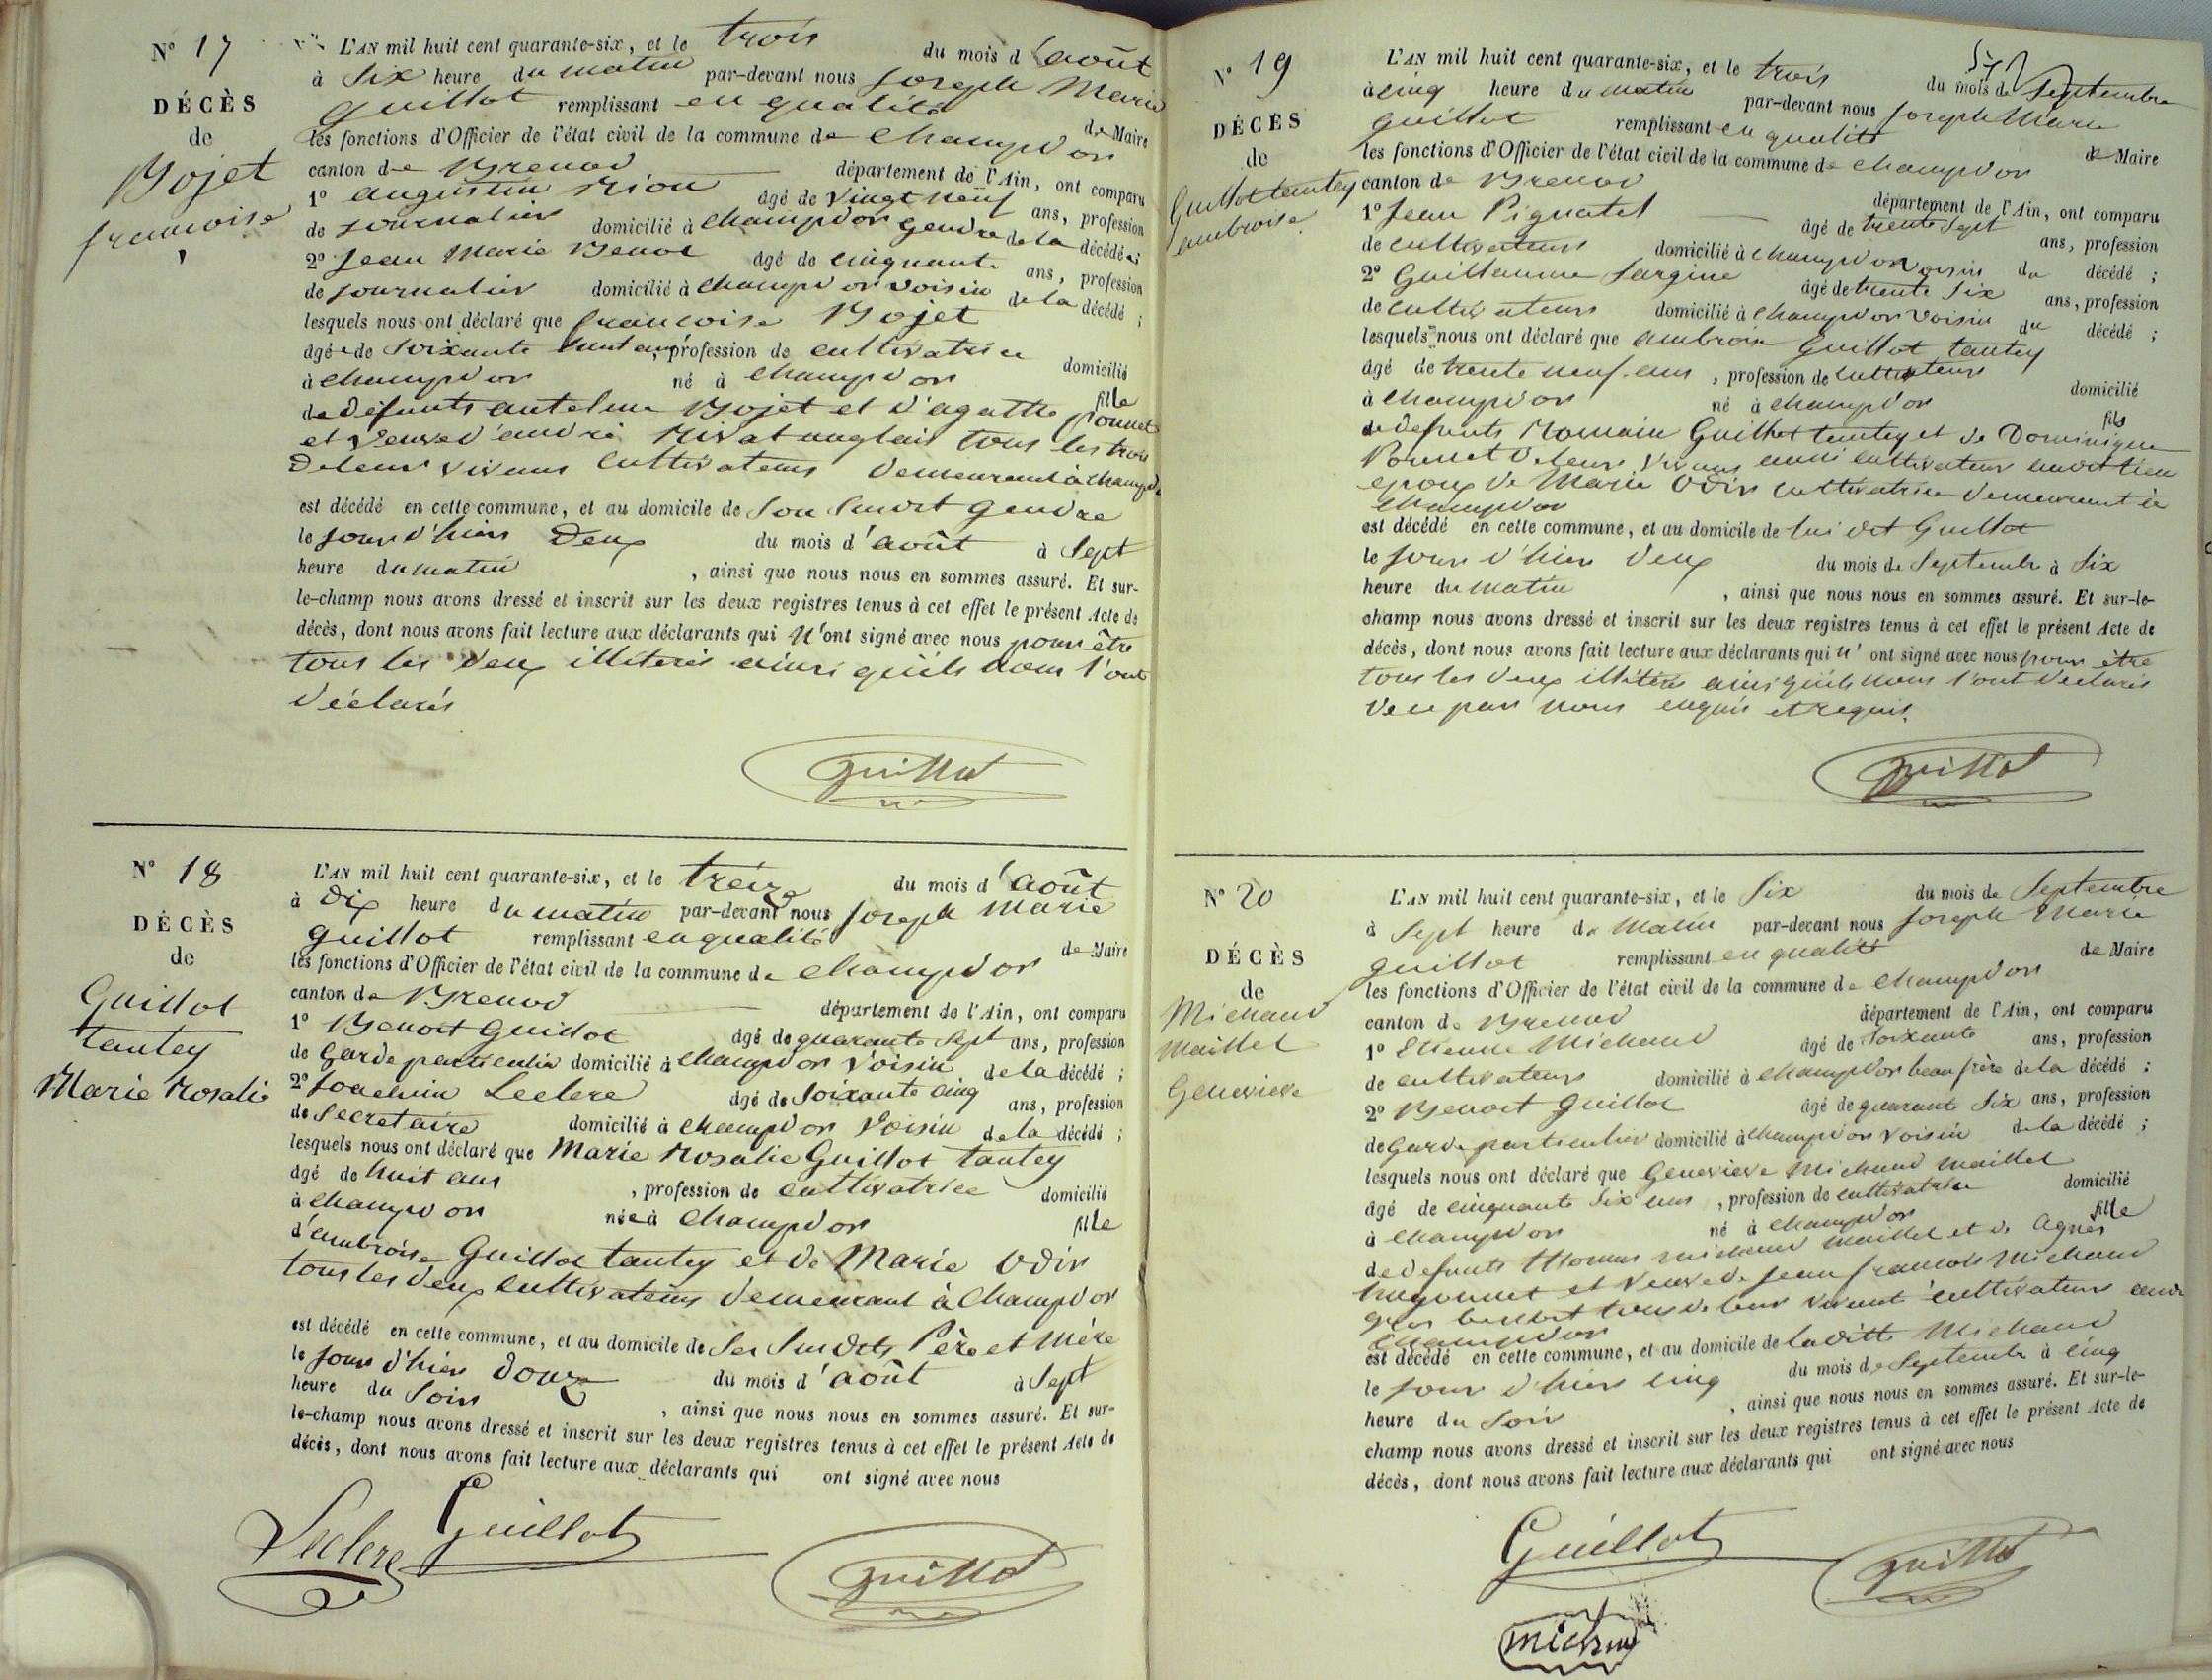 N° 17
DÉCÈS
de
Bojet
françoise
L'AN mil huit cent quarante-six, et le trois du mois d'août
à Six heure du matin par-devant nous Joseph Marie
guillot remplissant en qualité de Maire
les fonctions d'Officier de l'état civil de la commune de Champdor
canton de Brenod département de l'Ain, ont comparu
1° augustin Rion âgé de vingt neuf ans, profession
de Journalier domicilié à Champdor gendre de la décédée
2° Jean Marie Benoit âgé de cinquante ans, profession
de Journalier domicilié à Champdor voisin de la décédé ;
lesquels nous ont déclaré que françoise Bojet
âgé de Soixante ans, profession de cultivatrice domicilié
à Champdor né à Champdor fille
de défunts antelme Bojet et d'agathe ponnet
et veuve d'andré Rivat anglais tous les trois
de leur vivans Cultivateurs demeurant à Champdor
est décédé en cette commune, et au domicile de Son Susdit gendre
le jour d'hier Deux du mois d'août à Sept
heure du matin , ainsi que nous nous en sommes assuré. Et sur-
le-champ nous avons dressé et inscrit sur les deux registres tenus à cet effet le présent Acte de
décès, dont nous avons fait lecture aux déclarants qui n'ont signé avec nous pour être
tous les deux illiterés ainsi qu'ils nous l'ont
déclarés
guillot
N° 18
DÉCÈS
de
Guillot
tantey
Marie Rosalie
L'AN mil huit cent quarante-six, et le treize du mois d'août
à Dix heure du matin par-devant nous Joseph Marie
guillot remplissant en qualité de Maire
les fonctions d'Officier de l'état civil de la commune de Champdor
canton de Brenod département de l'Ain, ont comparu
1° Benoit Guillot âgé de quarante Sept ans, profession
de Garde particulier domicilié à Champdor voisin de la décédé ;
2° Joachim Leclerc âgé de Soixante cinq ans, profession
de Secretaire domicilié à Champdor Voisin de la décédé ;
lesquels nous ont déclaré que Marie Rosalie Guillot tantey
âgé de huit ans , profession de cultivatrice domicilié
à Champdor née à Champdor fille
d'ambroise Guillot tantey et de Marie Odin
tous les deux Cultivateurs demeurant à Champdor
est décédé en cette commune, et au domicile de Ses Susdits Père et Mère
le jour d'hier douze du mois d'août à Sept
heure du Soir , ainsi que nous nous en sommes assuré. Et sur-
le-champ nous avons dressé et inscrit sur les deux registres tenus à cet effet le présent Acte de
décès, dont nous avons fait lecture aux déclarants qui ont signé avec nous
Leclerc Guillot
guillot
N° 19
DÉCÈS
de
Guillot tantey
ambroise
L'AN mil huit cent quarante-six, et le trois du mois de Septembre
à cinq heure du matin par-devant nous Joseph Marie
guillot remplissant en qualité de Maire
les fonctions d'Officier de l'état civil de la commune de Champdor
canton de Brenod département de l'Ain, ont comparu
1° Jean Pignatel âgé de trente Sept ans, profession
de Cultivateur domicilié à Champdor voisin du décédé ;
2° Guillaume Sargine âgé de trente Six ans, profession
de Cultivateur domicilié à Champdor voisin du décédé ;
lesquels nous ont déclaré que ambroise Guillot tantey
âgé de trente neuf ans , profession de Cultivateur domicilié
à Champdor né à Champdor fils
de defunts Romain Guillot tantey et de Dominique
Ponnet de leur vivans aussi cultivateur audit lieu
epoux de Marie Odin cultivatrice demeurant à
Champdor
est décédé en cette commune, et au domicile de lui dit Guillot
le jour d'hier deux du mois de Septembre à Six
heure du matin , ainsi que nous nous en sommes assuré. Et sur-le-
champ nous avons dressé et inscrit sur les deux registres tenus à cet effet le présent Acte de
décès, dont nous avons fait lecture aux déclarants qui n'ont signé avec nous pour être
tous les deux illiterés ainsi qu'ils nous l'ont declarés
de ce par nous enquis et requis.
guillot
N° 20
DÉCÈS
de
Michaud
Maillet
Genevieve
L'AN mil huit cent quarante-six, et le Six du mois de Septembre
à Sept heure du Matin par-devant nous Joseph Marie
guillot remplissant en qualité de Maire
les fonctions d'Officier de l'état civil de la commune de Champdor
canton de Brenod département de l'Ain, ont comparu
1° Etienne Michaud âgé de Soixante ans, profession
de cultivateur domicilié à Champdor beau frère de la décédé ;
2° Benoit Guillot âgé de quarante Six ans, profession
de Garde particulier domicilié à Champdor voisin de la décédé ;
lesquels nous ont déclaré que Genevieve Michaud Maillet
âgé de cinquante Six ans , profession de cultivatrice domicilié
à Champdor né à Champdor fille
de defunts thomas michaud maillet et de Agnès
et veuve de Jean françois Michaud
tous de leur vivant cultivateurs
Champdor
est décédé en cette commune, et au domicile de ladite Michaud
le jour d'hier cinq du mois de Septembre à cinq
heure du Soir , ainsi que nous nous en sommes assuré. Et sur-le-
champ nous avons dressé et inscrit sur les deux registres tenus à cet effet le présent Acte de
décès, dont nous avons fait lecture aux déclarants qui ont signé avec nous
Guillot
guillot
michau